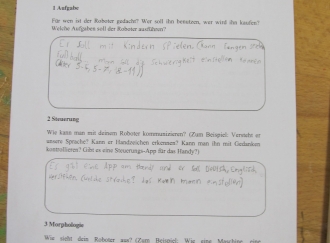 1 Aufgabe
Für wen ist der Roboter gedacht? Wer soll ihn benutzen, wer wird ihn kaufen?
Welche Aufgaben soll der Roboter ausführen?
Er soll mit kindern spielen (kann fangen
Fußball
man die Schwirigkeit einstellen
5-7, 8-11))
2 Steuerung
Wie kann man mit deinem Roboter kommunizieren? (Zum Beispiel: Versteht er
unsre Sprache? Kann er Handzeichen erkennen? Kann man ihn mit Gedanken
kontrollieren? Gibt es eine Steuerungs-App für das Handy?)
Es gibt eine App am Handy und er
kann mann einstellen)
3 Morphologie
Wie sieht dein Roboter aus? (Zum Beispiel: Wie eine Maschine, eine